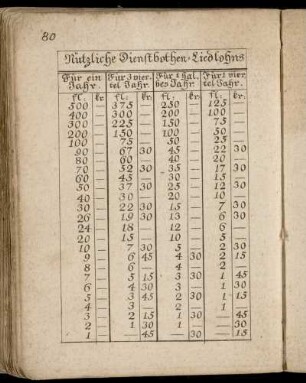 80
Nutzliche Dienstbothen-Liedlohns
Für ein Jahr. | Für 3 vier-tel Jahr. | Für 1 hal-bes Jahr. | Für 1 vier-tel Jahr.
fl. | kr. | fl. | kr. | fl. | kr. | fl. | kr.
500 | — | 375 | — | 250 | — | 125 | —
400 | — | 300 | — | 200 | — | 100 | —
300 | — | 225 | — | 150 | — | 75 | —
200 | — | 150 | — | 100 | — | 50 | —
100 | — | 75 | — | 50 | — | 25 | —
90 | — | 67 | 30 | 45 | — | 22 | 30
80 | — | 60 | — | 40 | — | 20 | —
70 | — | 52 | 30 | 35 | — | 17 | 30
60 | — | 45 | — | 30 | — | 15 | —
50 | — | 37 | 30 | 25 | — | 12 | 30
40 | — | 30 | — | 20 | — | 10 | —
30 | — | 22 | 30 | 15 | — | 7 | 30
26 | — | 19 | 30 | 13 | — | 6 | 30
24 | — | 18 | — | 12 | — | 6 | —
20 | — | 15 | — | 10 | — | 5 | —
10 | — | 7 | 30 | 5 | — | 2 | 30
9 | — | 6 | 45 | 4 | 30 | 2 | 15
8 | — | 6 | — | 4 | — | 2 | —
7 | — | 5 | 15 | 3 | 30 | 1 | 45
6 | — | 4 | 30 | 3 | — | 1 | 30
5 | — | 3 | 45 | 2 | 30 | 1 | 15
4 | — | 3 | — | 2 | — | 1 | —
3 | — | 2 | 15 | 1 | 30 | — | 45
2 | — | 1 | 30 | 1 | — | — | 30
1 | — | — | 45 | — | 30 | — | 15